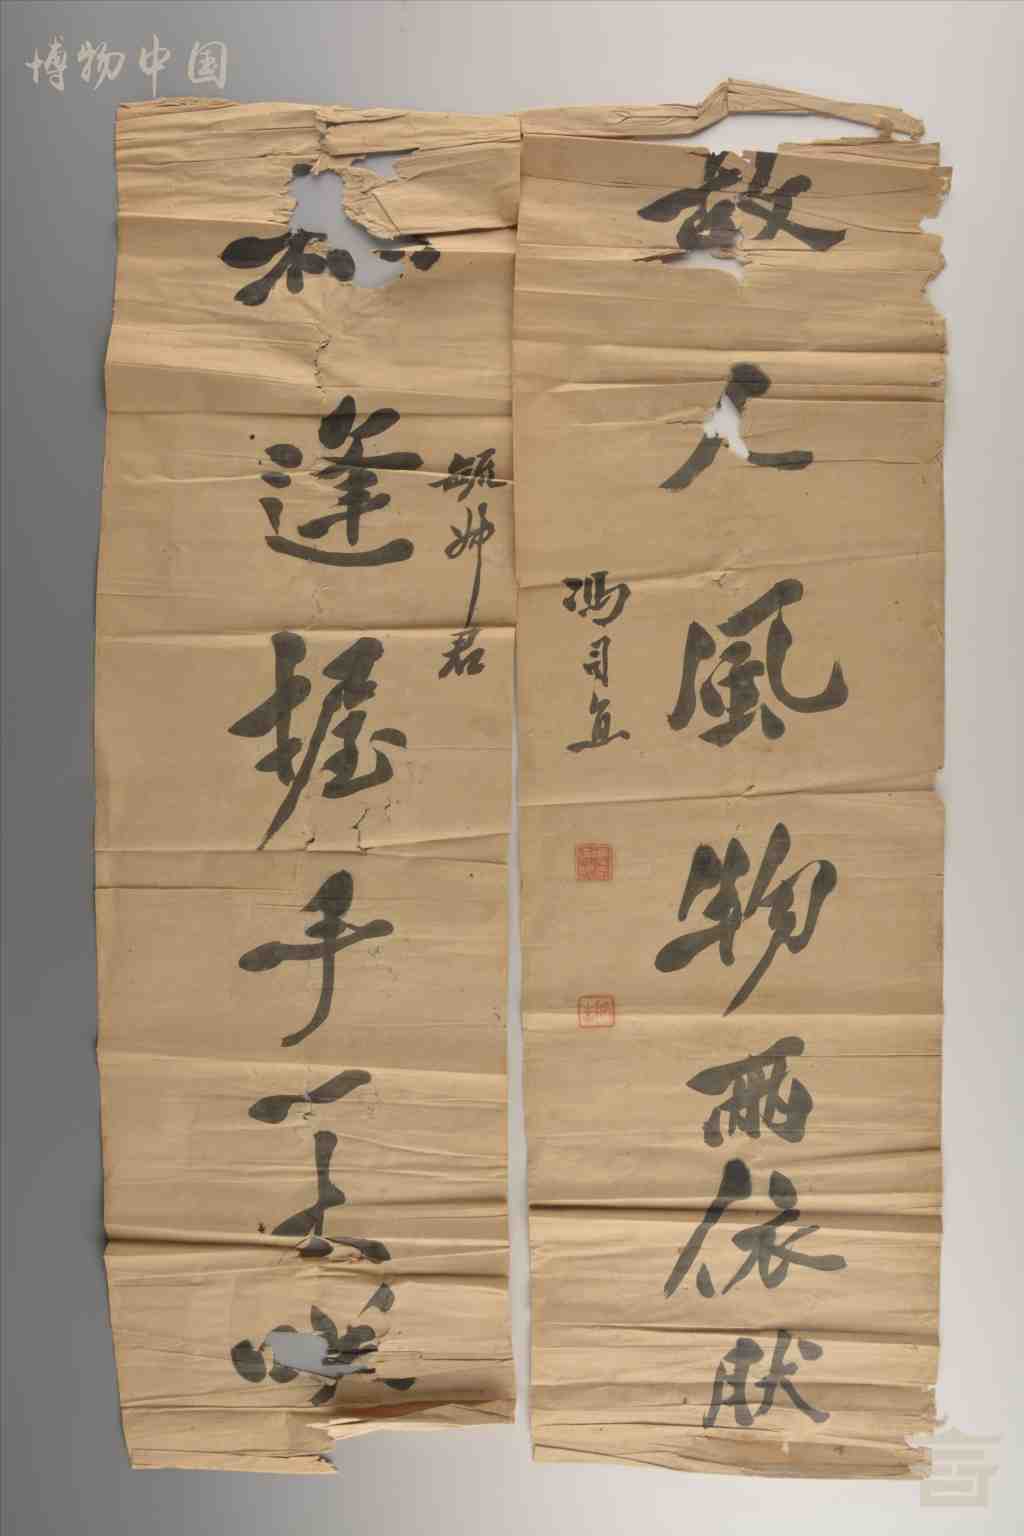 博物中国
故人風物兩依肰
馮司直
逢握手一大咲
姊君